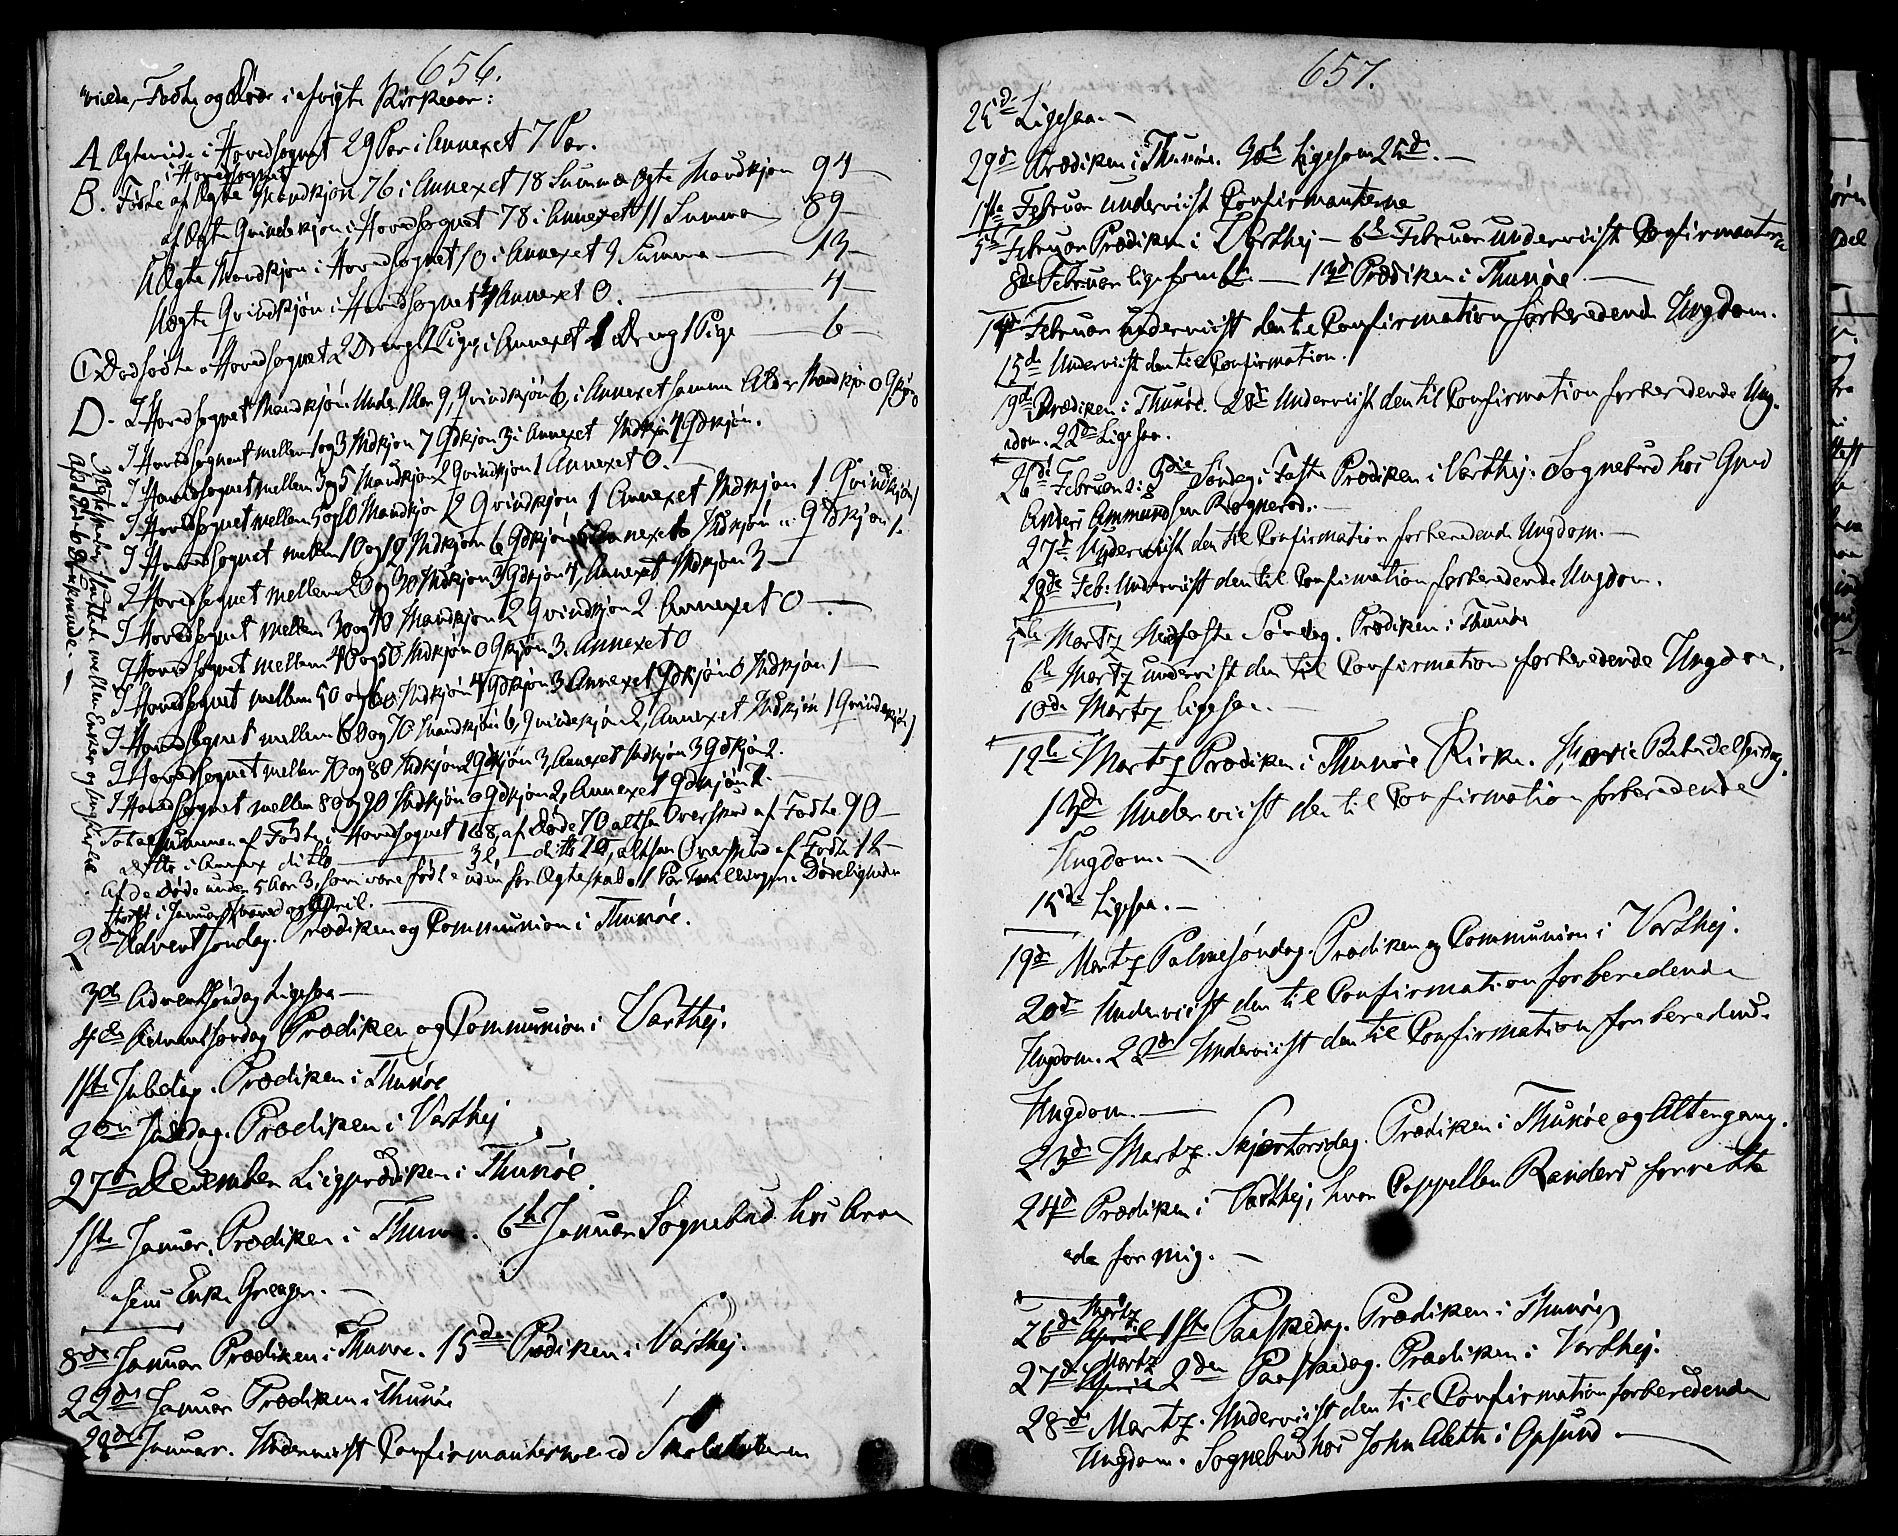 656.
viede, Fødte og Døde i afvigte Kirkeaar:
A Ægteviede i Hovedsognet 29 Par i Annexet 7 Par.
i Hovedsognet
B. Fødte af Ægte Mandkjøn 76 i Annexet 18 Summa Ægte Mandkjøn 94
af Ægte Qvindekjøn i Hovedsognet 78 i Annexet 11 Summa 89
Uægte Mandkjøn i Hovedsognet 10 i Annexet Summa 13
Uægte Qvindkjøn i Hovedsognet 4 Annexet 0. 4
C. Dødfødte i Hovedsognet 2 Drenge 2 Piger i Annexet 1 Dreng 1 Pige 6
D. I Hovedsognet Mandkjøn Under 1 Aar 9, Qvindkjøn 6, i Annexet samme Alder Mandkjøn 0
I Hovedsognet mellem 1 og 3 Mdkjøn 7 Qdkjøn 3 i Annexet Mdkjøn Qdkjøn.
I Hovedsognet mellem 3 og 5 Mandkjøn 2 Qvindkjøn 1 Annexet 0.
I Hovedsognet mellem 5 og 10 Mandkjøn 2 Qvindkjøn 1 Annexet Mdkjøn 1 Qvindkjøn 1
I Hovedsognet mellem 10 og Mdkjøn 6 Qdkjøn Annexet Mdkjøn Qdkjøn 1.
I Hovedsognet mellem 20 og 30 Mdkjøn Qdkjøn 4, Annexet Mdkjøn 3
I Hovedsognet mellem 30 og 40 Mandkjøn 2 Qvindkjøn 2 Annexet 0
I Hovedsognet mellem 40 og 50 Mdkjøn 0 Qkjøn 3. Annexet 0
I Hovedsognet mellem 50 og 60 Mdkjøn 4 Qdkjøn 3 Annexet Qdkjøn 0 Mdkjøn 1
I Hovedsognet mellem 60 og 70 Mandkjøn 6, Qvindekjøn 2, Annexet Mdkjøn 1 Qvindekjøn 1
I Hovedsognet mellem 70 og 80 Mdkjøn 2 Qdkjøn 3, Annexet Mdkjøn 3 Qdkjøn 2.
I Hovedsognet mellem 80 og 90 Mdkjøn 0 Qdkjøn 2, Annexet Qdkjøn 2.
Totalsummen af Fødte i Hovedsognet 168, af Døde 70 altsaa Overskud af Fødte 90
ditto i Annex ditto 32, ditto 20, altsaa Overskud af Fødte 12
Af de Døde under 5 Aar 3, som vare fødte uden for Ægteskab. 1 Par Tvillinger. Dødeligheden
størst i Januar og April.
Ægteviede mellem Enker og Ungkarle
af Enker
2den Advent søndag. Prædiken og Communion i Thunøe.
3die Adventsøndag Ligesaa
4de Adventsøndag Prædiken og Communion i Varthej.
1ste Juledag. Prædiken i Thunøe
2den Juledag. Prædiken i Varthej
27de December Liigprædiken i Thunøe.
1ste Januar. Prædiken i Thunøe. 6te Januar Sognebud hos Aren
=sens Enke Greager.
8de Januar Prædiken i Thunøe. 15de Prædiken i Varthej.
22de Januar Prædiken i Thunøe
Januar. Underviist Confirmanterne ved
657.
25de Ligesaa.
29de Prædiken i Thunøe. 30te Ligesom 25de.
1ste Februar underviist Confirmanterne
5te Februar Prædiken i Varthej — 6te Februar underviist Confirmanterne
8de Februar ligesom 6te. — 13de Prædiken i Thunøe
14de Februar underviist den til Confirmation forberedende Ungdom.
15de Underviist den til Confirmation.
19de Prædiken i Thunøe. Underviist den til Confirmation forberedende Ung-
dom. 22de Ligesaa.
26de Februar: 3die Søndag i Faste Prædiken i Varthej. Sognebud hos Gmd
Anders Ammundsen Rognerød.
27de Underviist den til Confirmation forberedende Ungdom.
28de Feb: Underviist den til Confirmation forberedende Ungdom.
5te Martz Midfaste Søndag. Prædiken i Thunøe
6te Martz underviist den til Confirmation forberedende Ungdom.
10de Martz ligesaa.
12te Martz Prædiken i Thunøe Kirke. Mariæ Bebudelsesdag.
13de Underviist den til Confirmation forberedende
Ungdom.
15de Ligesaa.
19de Martz Palmesøndag. Prædiken og Communion i Varthej.
20de Underviist den til Confirmation forberedende
Ungdom. 22de Underviist den til Confirmation forberedende
Ungdom.
23de Martz. Skjærtorsdag. Prædiken i Thunøe og Altergang.
24de Prædiken i Varthej, hvor Cappellan Randers forrettede
=ede for mig.
Martz
26de April 1ste Paaskedag. Prædiken i Thunøe
Martz
27de April 2den Paaskedag. Prædiken i Varthej.
28de Martz. Underviist den til Confirmation forberedende
Ungdom. Sognebud hos John Aleth i Opsund.